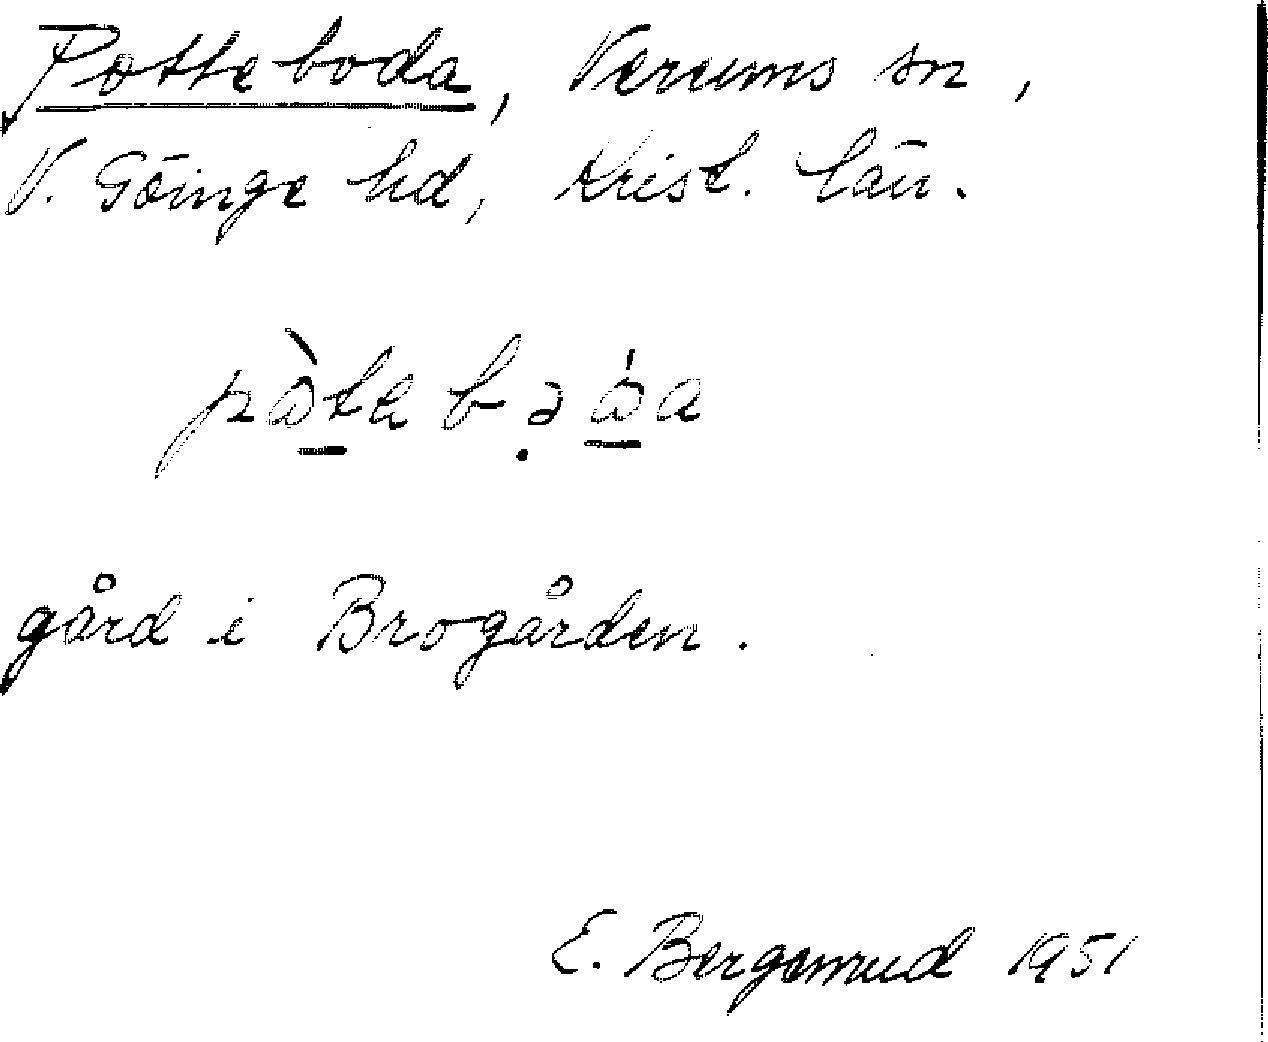 Potteboda, Verums sn,
V. Göinge hd, Krist. län.
pò̲te bə̣ó̲a
gård i Brogården.
E. 1951